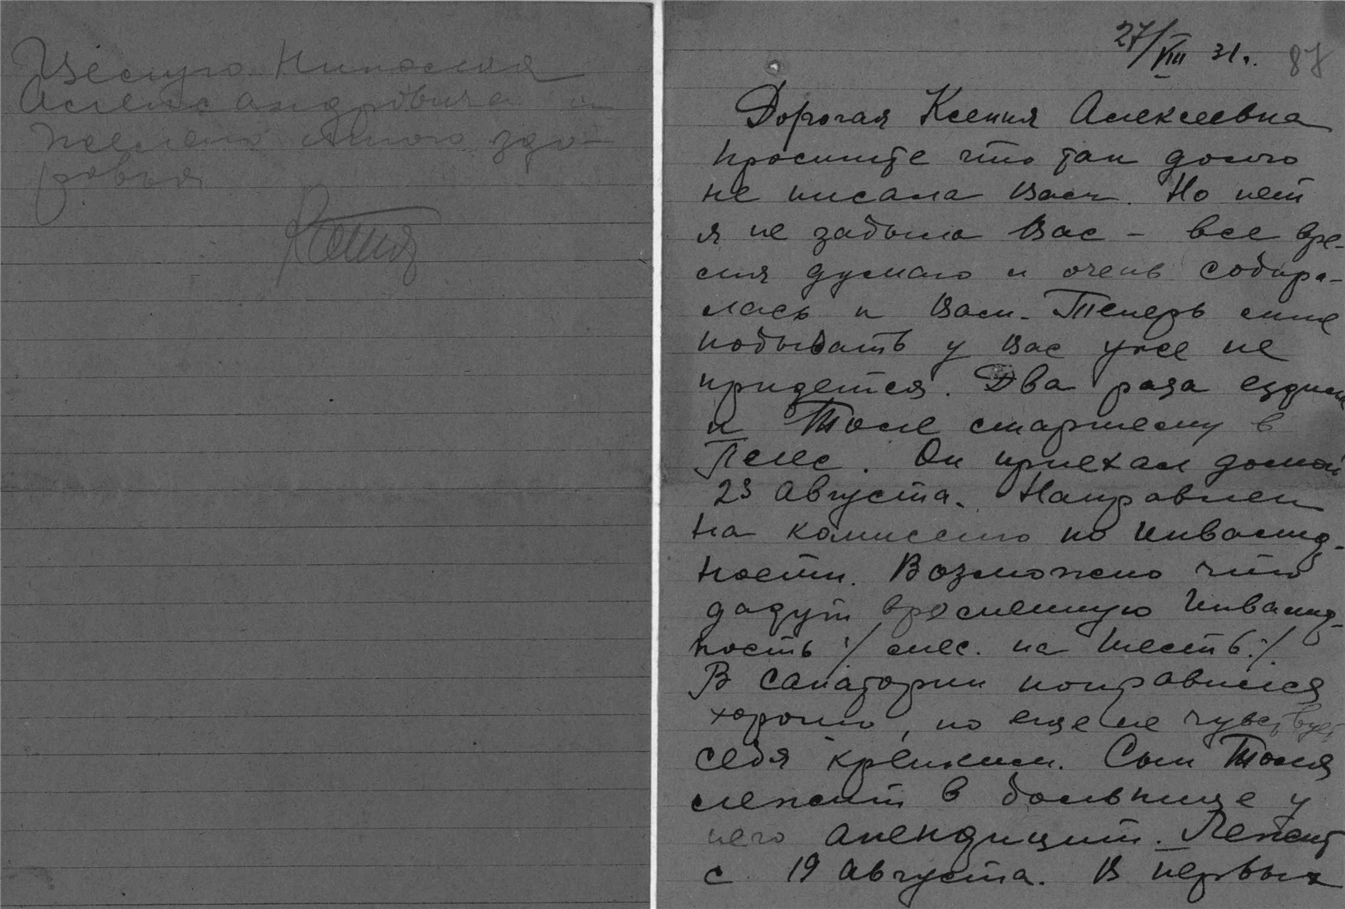 Целую Николая
Александровича и
желаю много здо-
ровья
Ксения
27/VIII 31г. 87
Дорогая Ксения Алексеевна
простите что так долго
не писала Вам. Но нет
я не забыла Вас – все вре-
мя думаю и очень собира-
лась к Вам. Теперь мне
побывать у Вас уже не
придется. Два раза ездила
к Толе старшему в
Пелес. Он приехал домой
23 Августа. Направлен
на комиссию по инвалид-
ности. Возможно что
дадут временную инвалид-
ность /мес. на шесть./
В санатории поправился
хорошо, но еще не чувствует
себя крепким. Сын Толя
лежит в больнице у
него апендицит. Лежит
с 19 августа. В первых